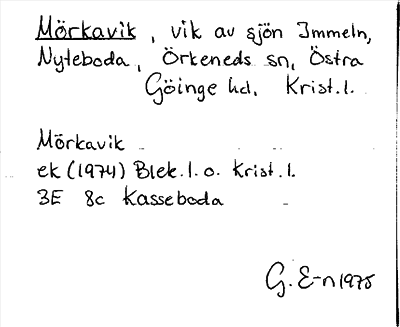 Mörkavik, vik av sjön Immeln,
Nyteboda, Örkeneds sn, Östra
Göinge hd. Krist.l.
Mörkavik
ek (1974) Blek.l.o. Krist.l.
3E 8c Kasseboda
G. E-n 1975